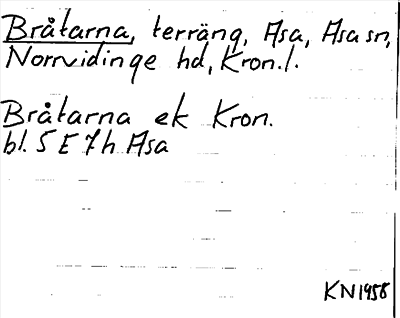 Bråtarna, terräng, Asa, Asa sn,
Norrvidinge hd, Kron.l.
Bråtarna ek Kron.
bl. 5 E 7 h Asa
KN1958